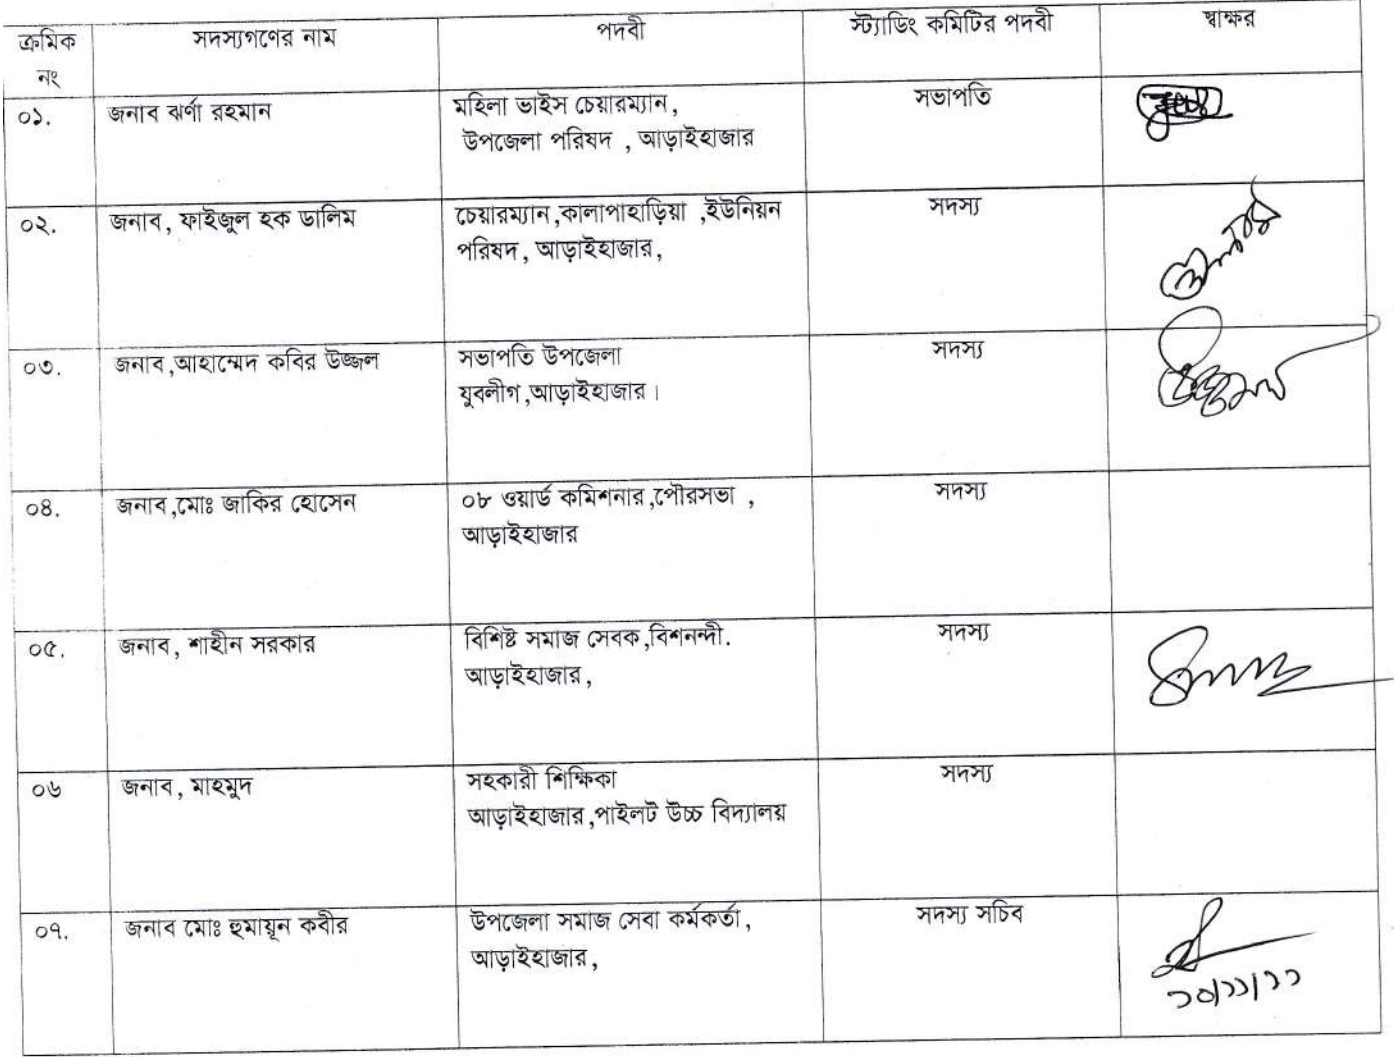 ক্রমিক নং | সদস্যগণের নাম | পদবী | স্ট্যাডিং কমিটির পদবী | স্বাক্ষর
০১. | জনাব ঝর্ণা রহমান | মহিলা ভাইস চেয়ারম্যান,
উপজেলা পরিষদ , আড়াইহাজার | সভাপতি
০২. | জনাব, ফাইজুল হক ডালিম | চেয়ারম্যান,কালাপাহাড়িয়া ,ইউনিয়ন
পরিষদ, আড়াইহাজার, | সদস্য
০৩. | জনাব,আহাম্মেদ কবির উজ্জল | সভাপতি উপজেলা
যুবলীগ,আড়াইহাজার। | সদস্য
০৪. | জনাব,মোঃ জাকির হোসেন | ০৮ ওয়ার্ড কমিশনার,পৌরসভা ,
আড়াইহাজার | সদস্য
০৫. | জনাব, শাহীন সরকার | বিশিষ্ট সমাজ সেবক,বিশনন্দী.
আড়াইহাজার, | সদস্য
০৬ | জনাব, মাহমুদ | সহকারী শিক্ষিকা
আড়াইহাজার,পাইলট উচ্চ বিদ্যালয় | সদস্য
০৭. | জনাব মোঃ হুমায়ূন কবীর | উপজেলা সমাজ সেবা কর্মকর্তা,
আড়াইহাজার, | সদস্য সচিব